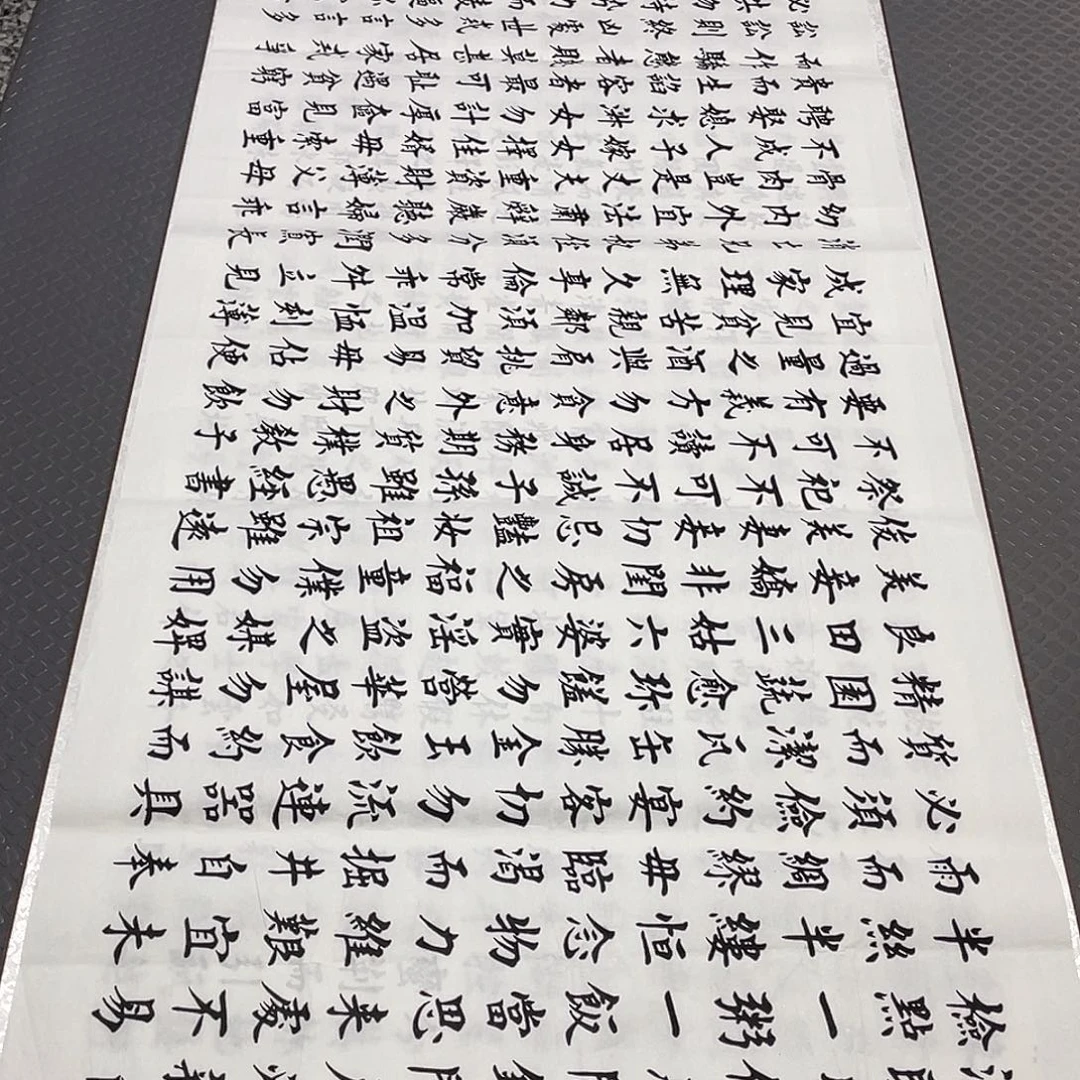 檢點一粥一飯當思來處不易
半絲半縷恒念物力維艱宜未
雨而綢繆毋臨渴而掘井自奉
必須儉約宴客切勿流連器具
質而潔瓦缶勝金玉飲食約而
精園蔬愈珍饈勿營華屋勿謀
良田三姑六婆實淫盜之媒婢
美妾嬌非閨房之福童僕勿用
俊美妻妾切忌艷妝祖宗雖遠
祭祀不可不誠子孫雖愚經書
不可不讀居身務期質樸教子
要有義方勿貪意外之財勿飲
過量之酒與肩挑貿易毋佔便
宜見貧苦親鄰須加溫恤刻薄
成家理無久享倫常乖舛立見
消亡兄弟叔侄須分多潤寡長
幼內外宜法肅辭嚴聽婦言乖
骨肉豈是丈夫重資財薄父母
不成人子嫁女擇佳婿毋索重
聘娶媳求淑女勿計厚奩見富
貴而生諂容者最可恥遇貧窮
而作驕態者賤莫甚居家戒爭
訟訟則終凶處世戒多言言多